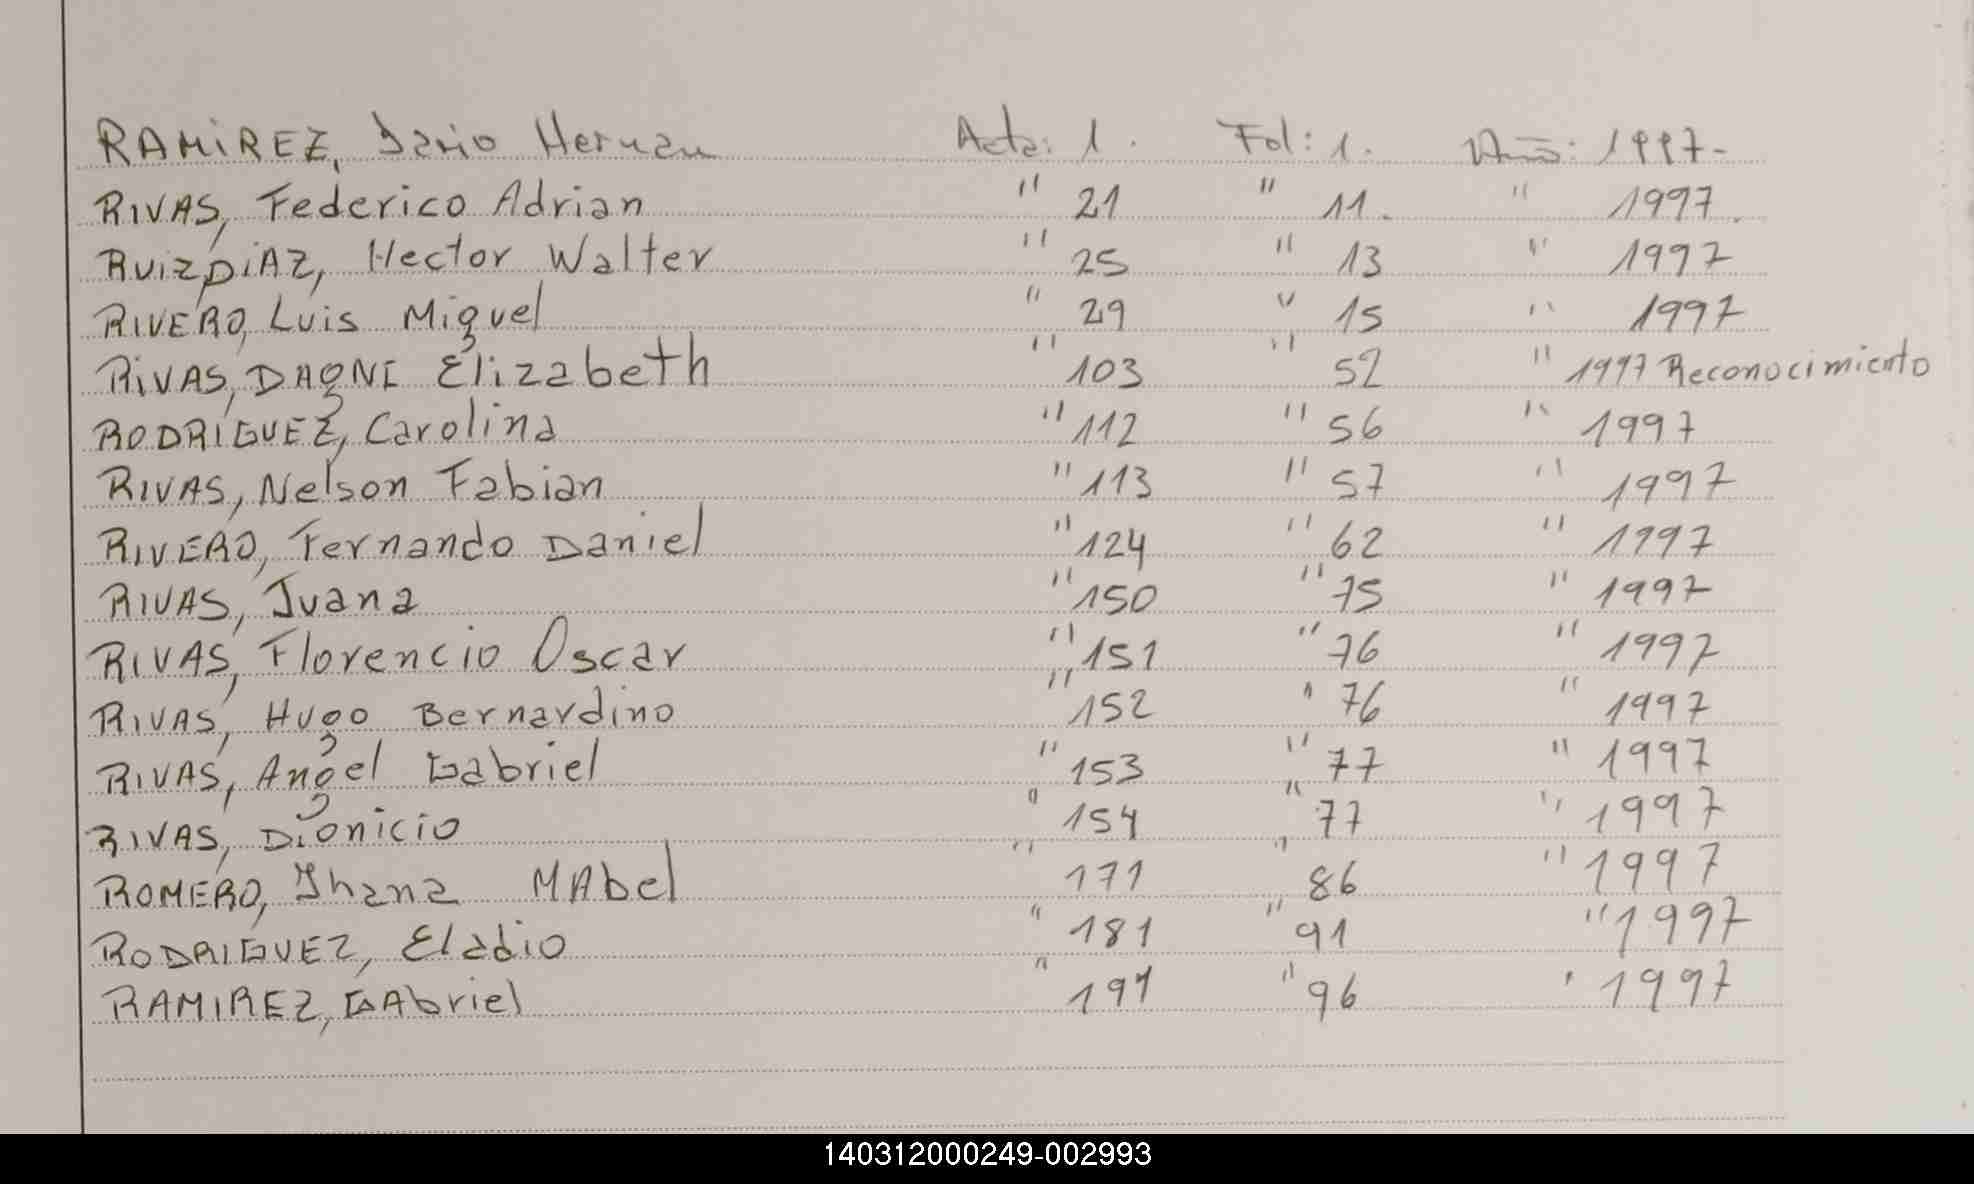 RAMIREZ, Dario Hernan Acta: 1. Fol: 1. Año: 1997-
RIVAS, Federico Adrian " 21 " 11. " 1997.
RUIZDIAZ, Hector Walter " 25 " 13 " 1997
RIVERO, Luis Miguel " 29 " 15 " 1997
RIVAS, DAGNE Elizabeth " 103 " 52 " 1997 Reconocimiento
RODRIGUEZ, Carolina " 112 " 56 " 1997
RIVAS, Nelson Fabian " 113 " 57 " 1997
RIVERO, Fernando Daniel " 124 " 62 " 1997
RIVAS, Juana " 150 " 75 " 1997
RIVAS, Florencio Oscar " 151 " 76 " 1997
RIVAS, Hugo Bernardino " 152 " 76 " 1997
RIVAS, Angel Gabriel " 153 " 77 " 1997
RIVAS, Dionicio " 154 " 77 " 1997
ROMERO, Jhana MAbel " 171 " 86 " 1997
RODRIGUEZ, Eladio " 181 " 91 " 1997
RAMIREZ, GAbriel " 191 " 96 " 1997
140312000249-002993